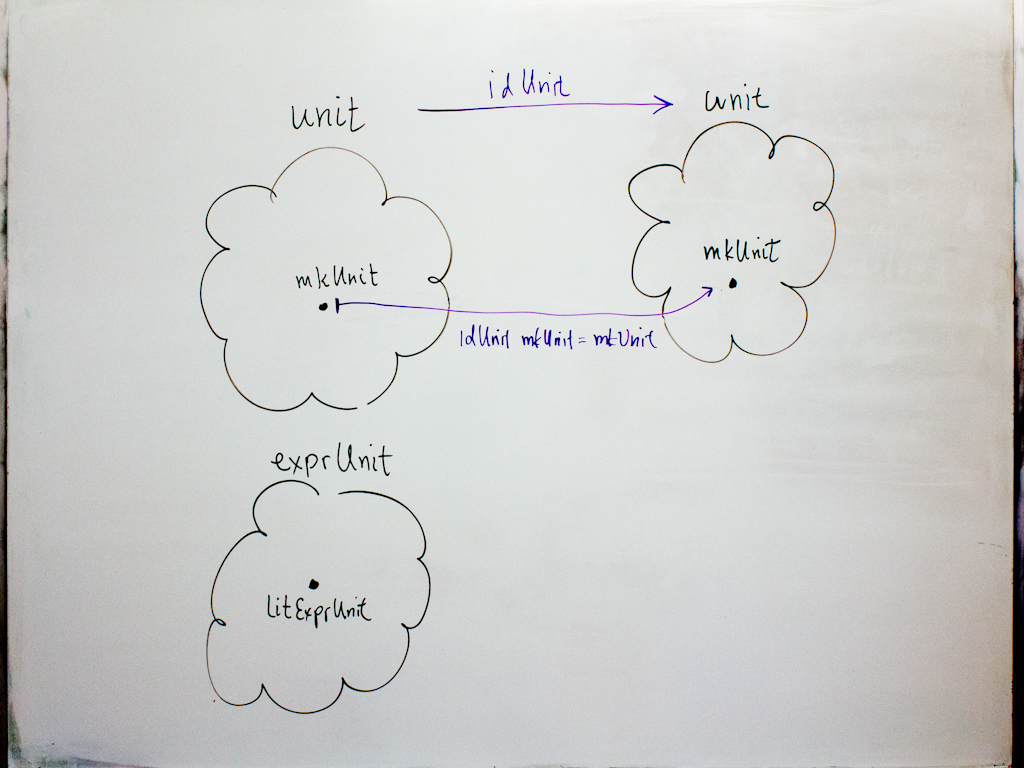 idUnit
unit
unit
mkUnit
mkUnit
idUnit mkUnit = mkUnit
exprUnit
litExprUnit